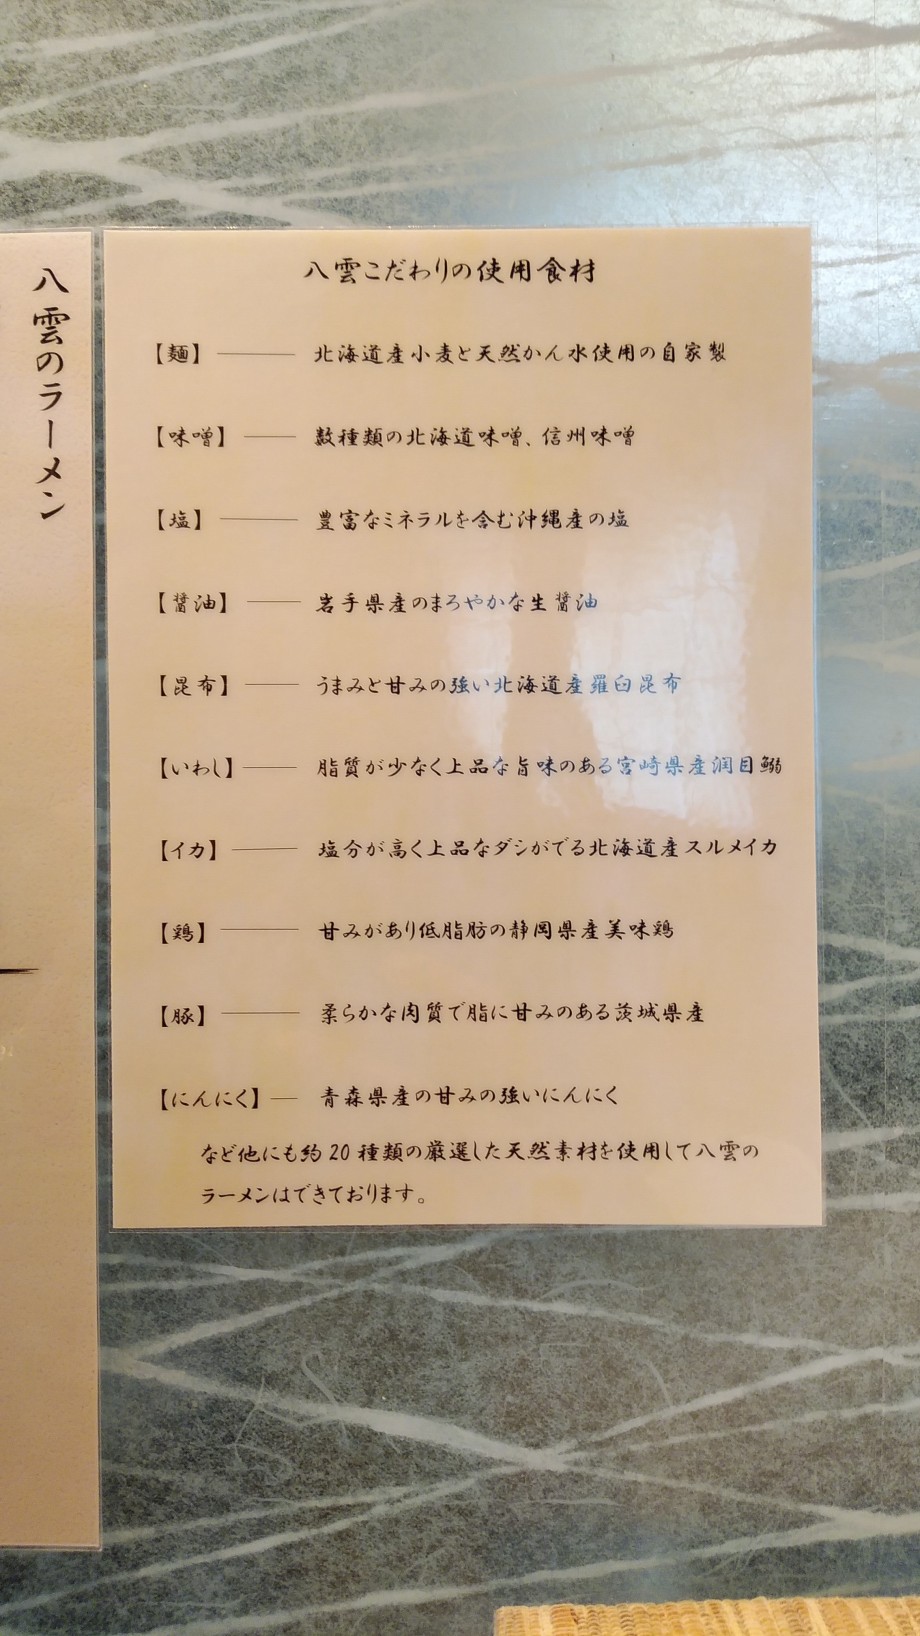 八雲のラーメン
八雲こだわりの使用食材
【麺】――― 北海道産小麦と天然かん水使用の自家製
【味噌】―― 数種類の北海道味噌、信州味噌
【塩】――― 豊富なミネラルを含む沖縄産の塩
【醤油】―― 岩手県産のまろやかな生醤油
【昆布】―― うまみと甘みの強い北海道産羅臼昆布
【いわし】―― 脂質が少なく上品な旨味のある宮崎県産潤目鰯
【イカ】――― 塩分が高く上品なダシがでる北海道産スルメイカ
【鶏】――― 甘みがあり低脂肪の静岡県産美味鶏
【豚】――― 柔らかな肉質で脂に甘みのある茨城県産
【にんにく】― 青森県産の甘みの強いにんにく
など他にも約20種類の厳選した天然素材を使用して八雲の
ラーメンはできております。